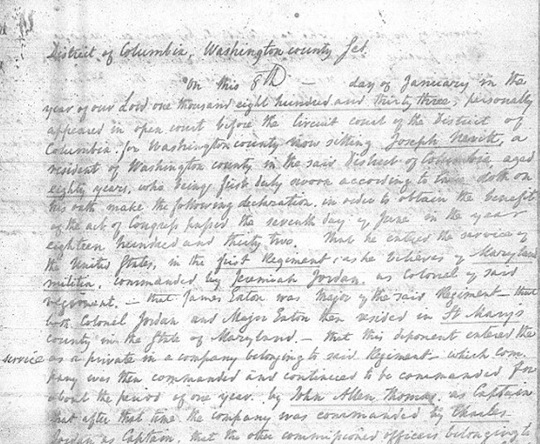 District of Columbia, Washington county Sct.
On this 8th — day of January in the
year of our Lord one thousand eight hundred and thirty three, personally
appeared in open court before the Circuit court of the District of
Columbia for Washington county now sitting Joseph Nevitt, a
resident of Washington county in the said District of Columbia aged
eighty years, who being first duly sworn according to law doth on
his oath make the following declaration in order to obtain the benefit
of the act of Congress passed the seventh day of June in the year
eighteen hundred and thirty two. That he entered the service of
the United States, in the first Regiment as he believes of Maryland
militia, commanded by Jeremiah Jordan as Colonel of said
regiment, — that James Eaton was Major of the said Regiment — that
both Colonel Jordan and Major Eaton then resided in St Marys
county in the State of Maryland — that this deponent entered the
service as a private in a company belonging to said Regiment — which com
pany was then commanded and continued to be commanded for
about the period of one year by John Allen Thomas as Captain
that after that time the company was commanded by Charles
Jordan as Captain, that the other commissioned officers belonging to